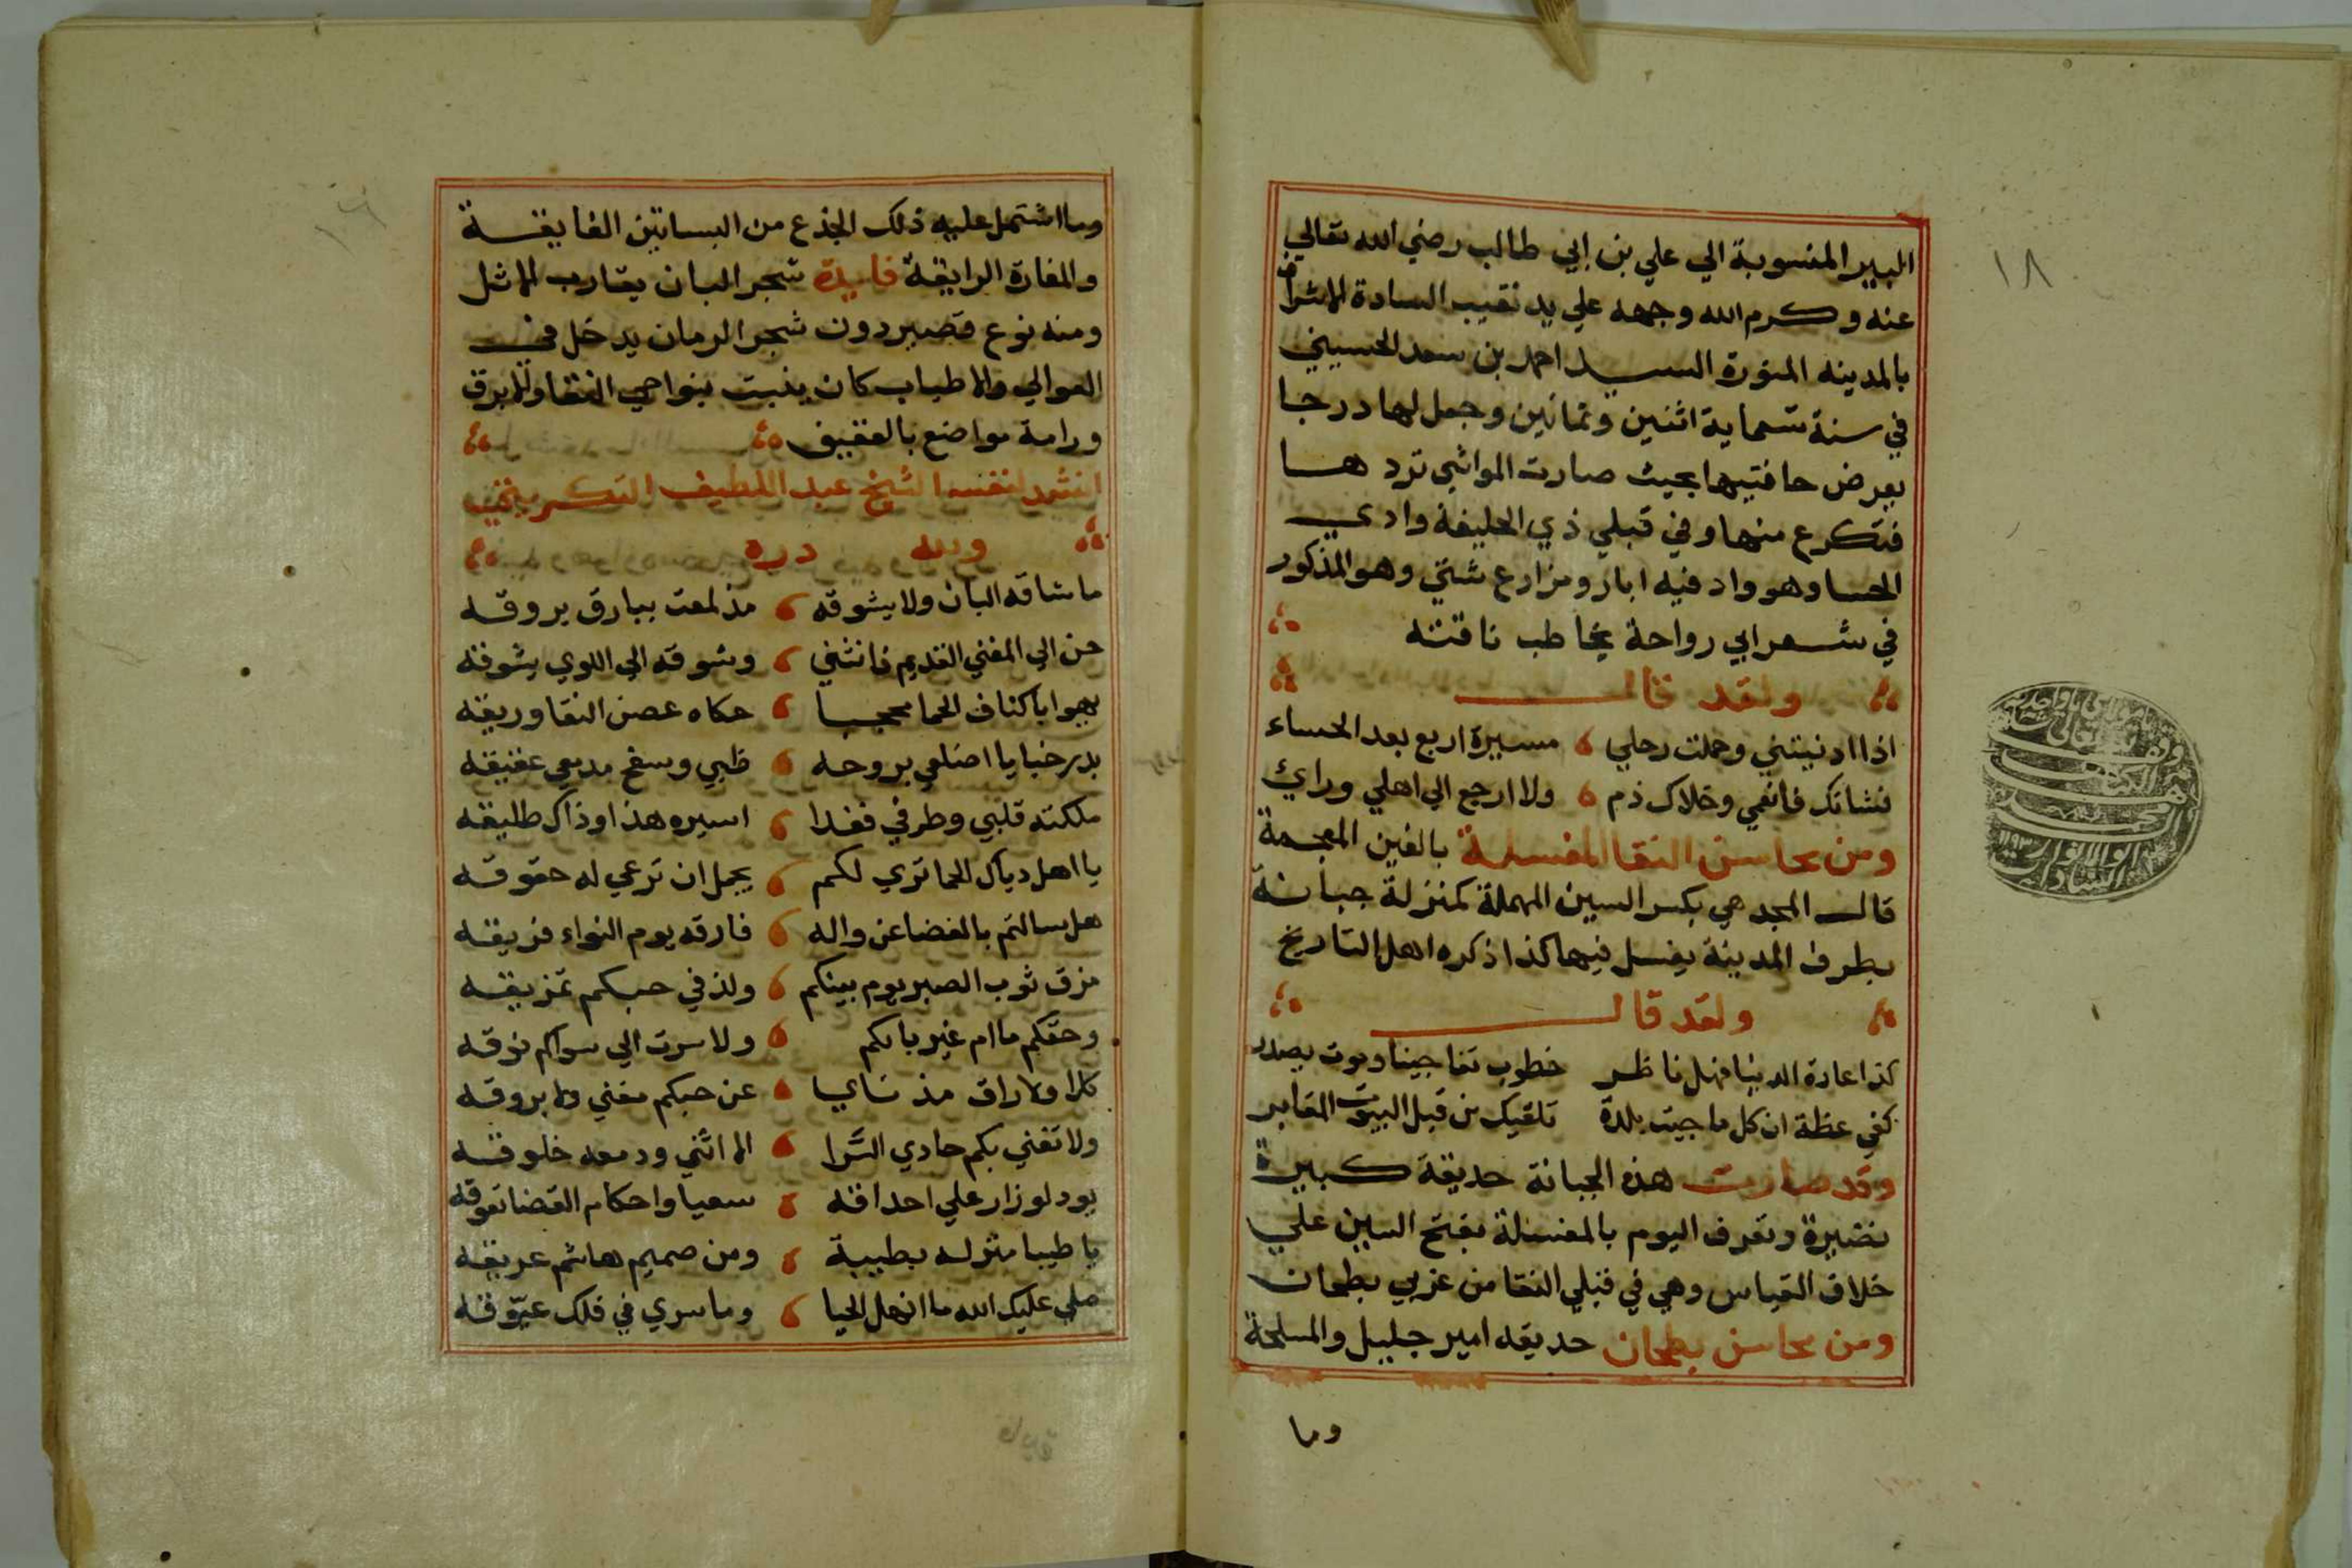 ١٨
البير المنسوبة الي علي بن ابي طالب رضي الله تعالي
عنه وكرم الله وجهه علي يد نقيب السادة الاشراف
بالمدينه المنورة السيد احمد بن سعد الحسيني
في سنة تسماية اثنين وثمانين وجعل لها درجا
بعرض حافتيها بحيث صارت المواشي تردها
فتكرع منها وفي قبلي ذي الحليفة وادي
الحسا وهو واد فيه ابار ومزارع شتي وهو المذكور
في شعر ابي رواحة يخاطب ناقته
ولقد قال
اذا ادنيتني وحملت رحلي مسيرة اربع بعد الحساء
فشانك فانعمي وخلاك ذم ولا ارجع الي اهلي ورائ
ومن محاسن النقا المغسلة بالغين المعجمة
قال المجد هي بكسر السين المهملة كمنزلة جبانة
بطرف المدينة يغسل فيها كذا ذكره اهل التاريخ
ولقد قال
كذا عادة الدنيا فهل ناظر خطوب تفاجينا وموت يصدر
كفي عظة ان كل ما جيت بلدة تلقيك من قبل البيوت المقابر
وقد صارت هذه الجبانة حديقة كبيرة
نضيرة وتعرف اليوم بالمغسلة بفتح السين علي
خلاف القياس وهي في قبلي النقا من غربي بطحان
ومن محاسن بطحان حديقه امير جليل والمسلحة
وما
وما اشتمل عليه ذلك الجذع من البساتين الفايقة
والمغارة الرايقة فايدة شجر البان يقارب الاثل
ومنه نوع قصير دون شجر الرمان يدخل في
الغوالي والاطياب كان ينبت بنواحي النقا والابرق
ورامة مواضع بالعقيق
انشد لنفسه الشيخ عبد اللطيف
ولله دره
ما شاقه البان ولا يشوقه مذ لمعت ببارق بروقه
حن الي المغني القديم فانثني وشوقه الي اللوي يشوقه
يهوا باكناف الحما محجبا حكاه غصن النقا وريقه
بدر خبايا اضلعي بروحه ظبي وسفح مدمعي عقيقه
ملكته قلبي وطرفي فغدا اسيره هذا وذاك طليقه
يا اهل دياك الحما تري لكم يجمل ان ترعي له حقوقه
هل سالتم بالغضا عن واله فارقه يوم النواء فريقه
مزق ثوب الصبر يوم بينكم ولذ في حبكم تمزيقه
وحقكم ما ام غير بابكم ولا سرت الي سواكم نوقه
كلا ولا راق مذ نايا عن حبكم مغني ولا بروقه
ولا تغني بكم حادي السرا الا انثني ودمعه خلوقه
يود لو زار علي احداقه سعيا واحكام القضا تعوقه
يا طيبا منزله بطيبة ومن صميم هاشم عريقه
صلي عليك الله ما انهل الحيا وما سري في فلك عيوقه